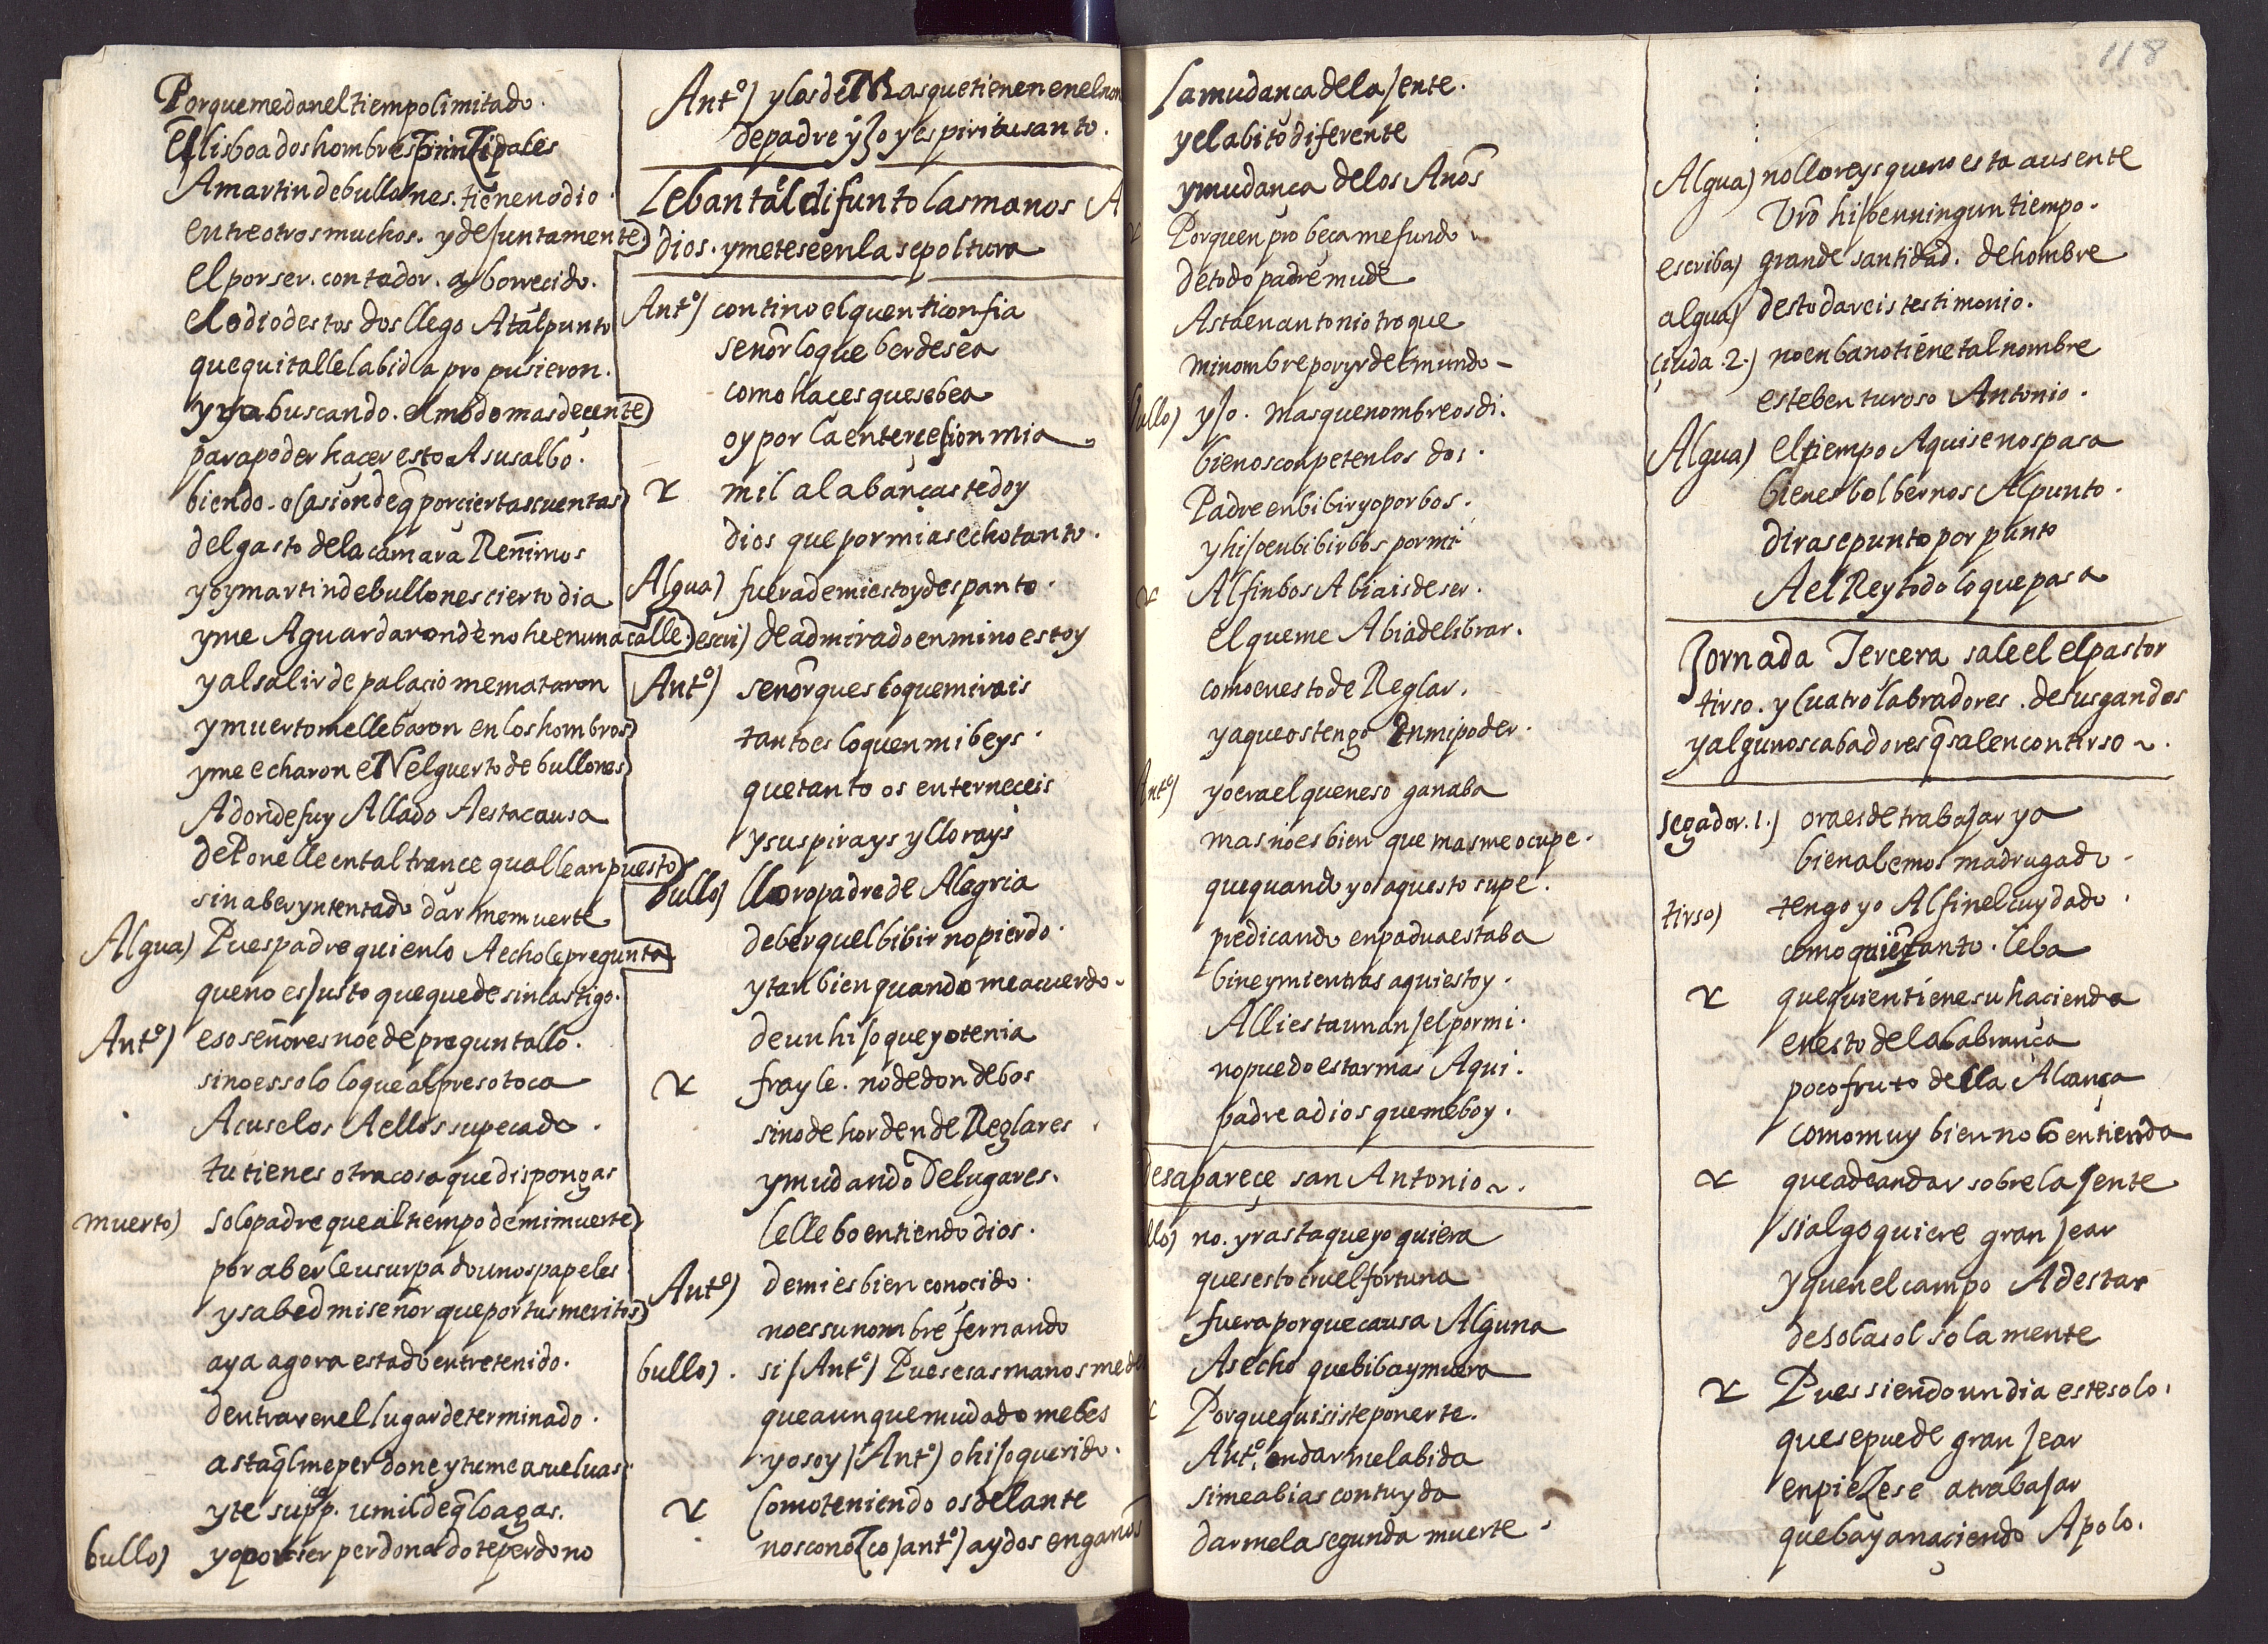 Porque me dan el tiempo limitado.
En lisboa dos hombres prinZipales
A martin de bullones. tienen odio
entre otros muchos. y de juntamente
el por ser. contador. aborrecido.
el odio destos dos llego A tal punto
que quitalle la bida pro pusieron.
y ya buscando. el modo mas deçente
para poder haçer esto A su salbo.
biendo. ocasion de q̃ por ciertas cuentas
del gasto de la camara Renimos
yo y martin de bullones cierto dia
y me Aguardaron de noche en una calle.
y al salir de palaçio me mataron
y muerto me llebaron en los hombros
y me echaron eN el guerto de bullones
A donde fuy Allado A esta causa
de Ponelle en tal trance qual le an puesto
sin aber yntentado dar me muerte
Algua) Pues padre quien lo A echo le pregunta
que no es justo que quede sin castigo.
Antº) eso señores no e de preguntallo.
sino es solo lo que al preso toca
Acuselos A ellos su pecado.
tu tienes otra cosa que dispongas
muerto) solo padre que al tiempo de mi muerte
por aberle usurpado unos papeles
y sabed mi señor que por tus meritos
aya agora estado entretenido.
dentrar en el lugar determinado.
asta q̃l me perdone y tu me asuelvas
yte supp.co umilde q̃ lo agas.
bullo) yo por ser perdonado te perdono
Antº) y los de Mas que tienen en el nom
de padre yJo y espiritu santo.
Lebanta el difunto las manos A
dios. y metese en la sepoltura
Antº) contino el quen ti confia
señor lo que ber desea
como haces que se bea
oy por la enterçesion mia
mil alabanças te doy
dios que por mi as echo tanto.
Algua) fuera de mi estoy despanto.
escri) de admirado en mi no estoy
Antº) señor ques lo que mirais
tanto es lo quen mi beys.
que tanto os enterneceis
y suspirays y llorays
bullo) lloro padre de Alegria
de ber quel bibir no pierdo.
y tan bien quando me acuerdo.
de un hijo que yo tenia
frayle. no de don de bos
sino de horden de Reglares
y mudando De lugares.
le llebo entiendo dios.
Antº) de mi es bien conocido.
no es su nombre fernando
bullo). si (Antº) Pues esas manos me de
que aunque mudado me bes
yo soy (Antº) o hijo querido.
Como teniendo os delante
nos conoZco) antº) ay dos engaños
la mudança de la Jente.
y el abito diferente
y mudança de los Años
Porquen pro beça me fundo
de todo padre mude
Asta en antonio troque
mi nombre por yr del mundo
bullo) yJo. mas que nombre os di.
bien os conpeten los dos.
Padre en bibir yo por bos.
y hijo en bibir bos por mi
Al fin bos Abiais de ser.
el que me Abia de librar.
como en esto de Reglar.
ya que os tengo En mi poder.
Antº) yo era el quen eso ganaba
mas no es bien que mas me ocupe.
que quando yo aquesto supe.
predicando en padua estaba
bine y mientras aqui estoy.
Alli esta un anJel por mi.
no puedo estar mas Aqui.
padre a dios que me boy.
desapareçe san Antonio.
llo) no. yras ta que yo quiera
ques esto cruel fortuna
fuera porque causa Alguna
As echo que biba y muera
Porque quisiste ponerte.
Antº. en dar me la bida
si me abias con tu yda
dar me la segunda muerte.
118
Algua) no lloreys que no esta ausente
Vrõ hijo en ningun tiempo.
escriba) grande santidad. de hombre
algua) desto dareis testimonio.
Çiuda.2.) no en bano tiene tal nombre
este benturoso Antonio.
Algua) el tiempo Aqui se nos pasa
bien es bolbernos Al punto.
dirase punto por punto
A el Rey todo lo que pasa
Jornada Tercera sale el el pastor
tirso. y Cuatro labradores. de su gandos
y algunos cabadores q̃ salen con tirso.
segador.1.) ora es de trabajar ya
bien abemos madrugado.
tirso) tengo yo Al fin el cuydado
como quien tanto. le ba
que quien tiene su hacienda
en esto de la labrança
poco fruto de lla Alcança
como muy bien no lo entienda
que a de andar sobre la Jente
si algo quiere granJear
y quen el campo A destar
de sol a sol sola mente
Pues siendo un dia este solo.
que se puede granJear
enpieZese a trabajar
que ba ya naçiendo Apolo.